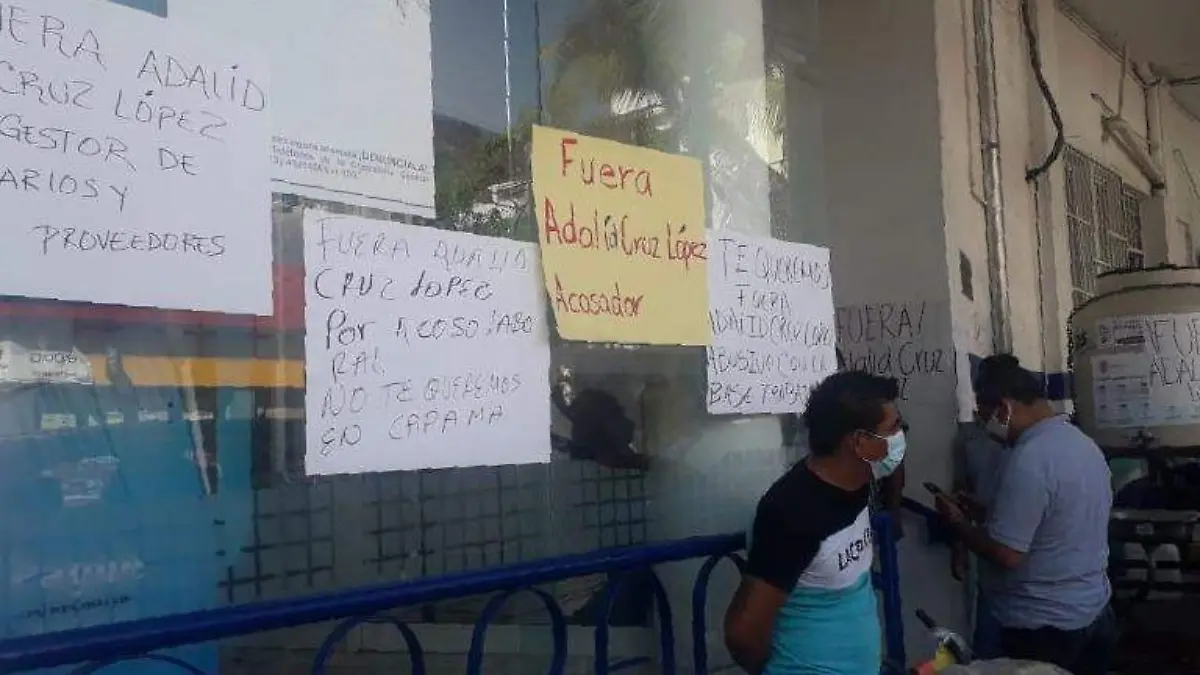 UERA ADALID
CRUZ LÓPEZ
GESTOR DE
ARIOS Y
PROVEEDORES
¡DENÚNCIALA!
FUERA ADALID
CRUZ LOPEZ
POR ACOSO LABO
RAL
NO TE QUEREMOS
EN CAPAMA
Fuera
Adalid Cruz López
Acosador
TE QUEREMOS
FUERA
ADALID CRUZ
ABUSIVO CON LA
BASE
FUERA!
Cruz
FUE
ADALI
LACO